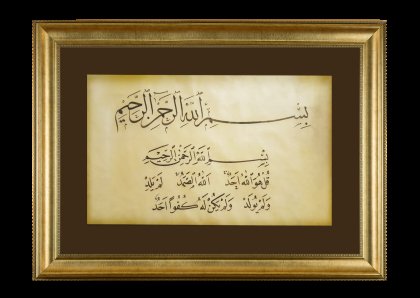 بِسْمِ ٱللَّهِ ٱلرَّحْمَٰنِ ٱلرَّحِيمِ
بِسْمِ ٱللَّهِ ٱلرَّحْمَٰنِ ٱلرَّحِيمِ
قُلْ هُوَ ٱللَّهُ أَحَدٌ ٱللَّهُ ٱلصَّمَدُ لَمْ يَلِدْ
وَلَمْ يُولَدْ وَلَمْ يَكُنْ لَهُ كُفُوًا أَحَدٌ